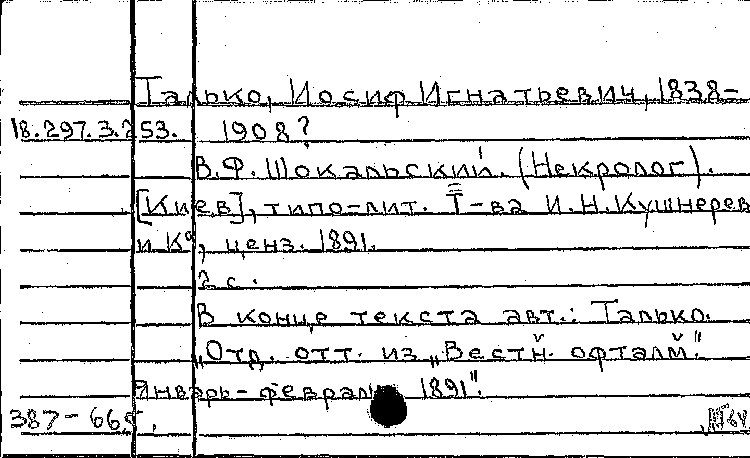 Талько, Иосиф Игнатьевич, 1838-
18.297.3.253. 1908?
В.Ф. Шокальский. (Некролог).
[Киев], типо-лит. Т-ва И.Н. Кушнерев
и К°, ценз. 1891.
2 с.
В конце текста авт.: Талько.
„Отд. отт. из „Вестн. офталм."
Январь-февраль 1891".
387-665.